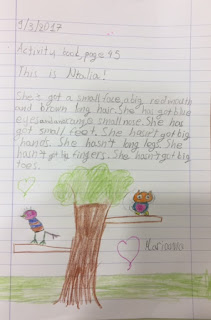 9/3/2017
Activity book, page 45
This is Ntalia!
She's got a small face, a big red mouth
and brown long hair. She has got blue
eyes and a small nose. She has
got small feet. She hasn't got big
hands. She hasn't long legs. She
hasn't got big fingers. She hasn't got big
toes.
Marianna